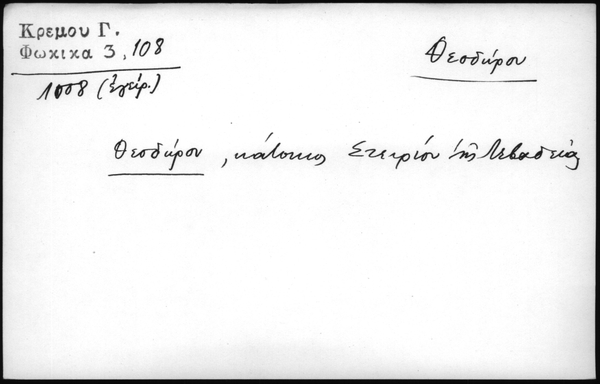 Κρεμου Γ.
Φωκικα 3, 108
Θεοδώρου
1008 (ἐγείρ.)
Θεοδώρου, κάτοικος Στειρίου τῆς Λεβαδείας